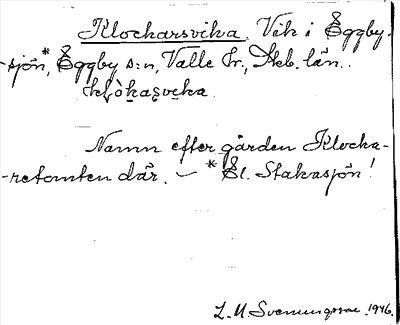 Klockarsvika. Vik i Eggby-
-sjön,* Eggby s:n, Valle hr., Skb. län.
klò̱ka̱svi̱ka.
Namn efter gården Klocka-
-retomten där. — * El. Stakasjön!
L. M. Svenungsson 1946.